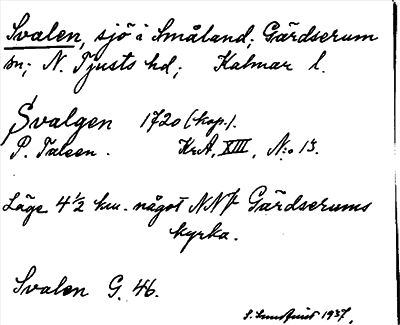 Svalen, sjö i Småland; Gärdserum
sn; N. Tjusts hd; Kalmar l.
Svalgen 1720 (kop.).
P. Taleen. KrA, XIII, N:o 13.
Läge 4 ½ km. något NNV Gärdserums
kyrka.
Svalen G. 46.
S. Lundquist 1937.